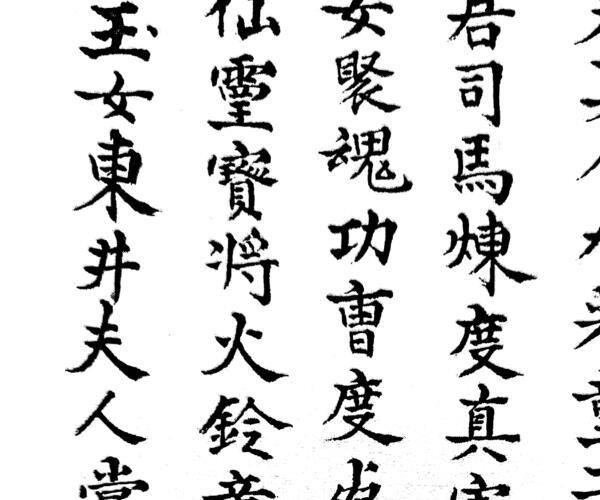 君司馬煉度真
女聚魂功曹度
仙靈寶將火鈴
玉女東井夫人